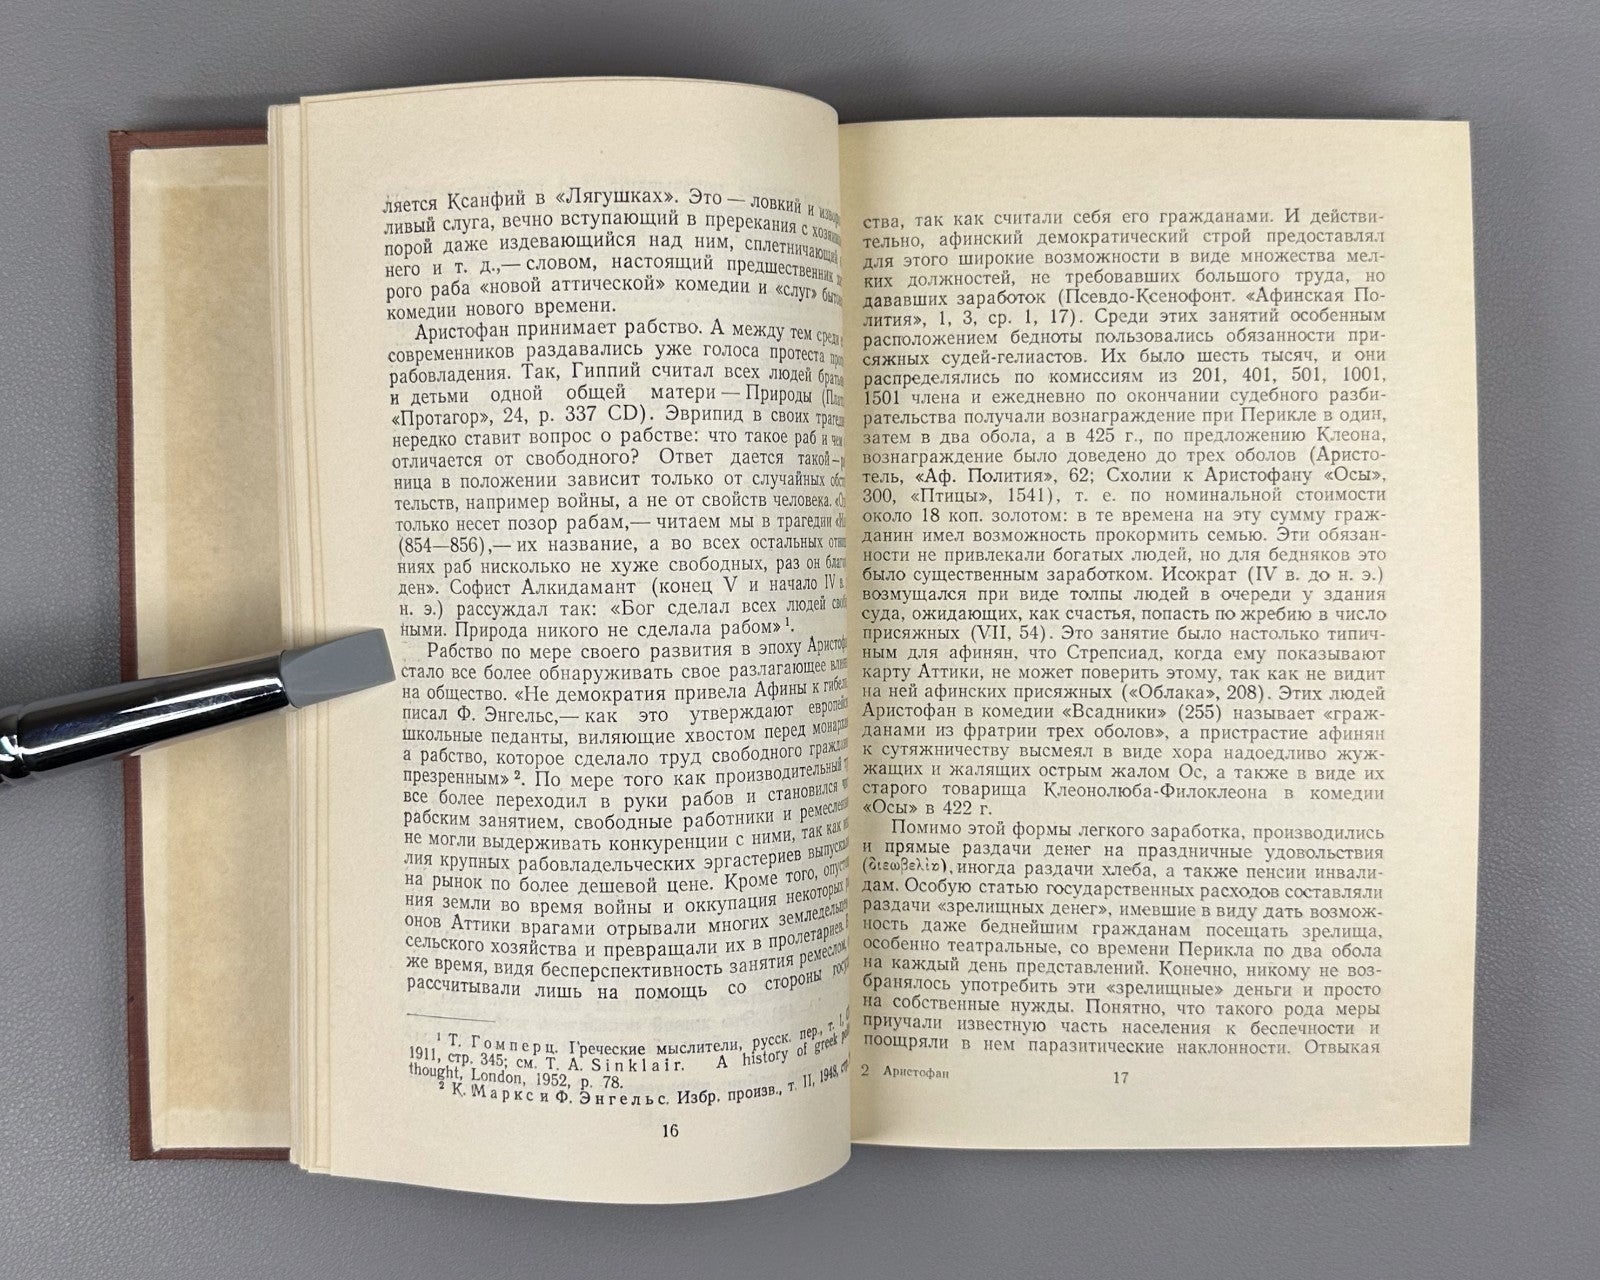 ляется Ксанфий в «Лягушках». Это — ловкий и
ливый слуга, вечно вступающий в пререкания с
порой даже издевающийся над ним, сплетничающий
него и т. д.,— словом, настоящий предшественник
рого раба «новой аттической» комедии и «слуг»
комедии нового времени.
Аристофан принимает рабство. А между тем
современников раздавались уже голоса протеста
рабовладения. Так, Гиппий считал всех людей
и детьми одной общей матери — Природы
«Протагор», 24, р. 337 CD). Эврипид в своих
нередко ставит вопрос о рабстве: что такое раб и чем
отличается от свободного? Ответ дается такой —
ница в положении зависит только от случайных
тельств, например войны, а не от свойств человека.
только несет позор рабам,— читаем мы в трагедии
(854—856),— их название, а во всех остальных
ниях раб нисколько не хуже свободных, раз он
ден». Софист Алкидамант (конец V и начало IV в.
н. э.) рассуждал так: «Бог сделал всех людей
ными. Природа никого не сделала рабом» ¹.
Рабство по мере своего развития в эпоху
стало все более обнаруживать свое разлагающее
на общество. «Не демократия привела Афины к
писал Ф. Энгельс,— как это утверждают
школьные педанты, виляющие хвостом перед
а рабство, которое сделало труд свободного
презренным» ². По мере того как производительный
все более переходил в руки рабов и становился
рабским занятием, свободные работники и
не могли выдерживать конкуренции с ними, так как
лия крупных рабовладельческих эргастериев
на рынок по более дешевой цене. Кроме того,
ния земли во время войны и оккупация некоторых
онов Аттики врагами отрывали многих
сельского хозяйства и превращали их в пролетариев.
же время, видя бесперспективность занятия ремеслом,
рассчитывали лишь на помощь со стороны
¹ Т. Гомперц. Греческие мыслители, русск. пер., т. I,
1911, стр. 345; см. T. A. Sinklair. A history of greek
thought, London, 1952, p. 78.
² К. Маркс и Ф. Энгельс. Избр. произв., т. II, 1948,
16
ства, так как считали себя его гражданами. И действи-
тельно, афинский демократический строй предоставлял
для этого широкие возможности в виде множества мел-
ких должностей, не требовавших большого труда, но
дававших заработок (Псевдо-Ксенофонт. «Афинская По-
лития», 1, 3, ср. 1, 17). Среди этих занятий особенным
расположением бедноты пользовались обязанности при-
сяжных судей-гелиастов. Их было шесть тысяч, и они
распределялись по комиссиям из 201, 401, 501, 1001,
1501 члена и ежедневно по окончании судебного разби-
рательства получали вознаграждение при Перикле в один,
затем в два обола, а в 425 г., по предложению Клеона,
вознаграждение было доведено до трех оболов (Аристо-
тель, «Аф. Полития», 62; Схолии к Аристофану «Осы»,
300, «Птицы», 1541), т. е. по номинальной стоимости
около 18 коп. золотом: в те времена на эту сумму граж-
данин имел возможность прокормить семью. Эти обязан-
ности не привлекали богатых людей, но для бедняков это
было существенным заработком. Исократ (IV в. до н. э.)
возмущался при виде толпы людей в очереди у здания
суда, ожидающих, как счастья, попасть по жребию в число
присяжных (VII, 54). Это занятие было настолько типич-
ным для афинян, что Стрепсиад, когда ему показывают
карту Аттики, не может поверить этому, так как не видит
на ней афинских присяжных («Облака», 208). Этих людей
Аристофан в комедии «Всадники» (255) называет «граж-
данами из фратрии трех оболов», а пристрастие афинян
к сутяжничеству высмеял в виде хора надоедливо жуж-
жащих и жалящих острым жалом Ос, а также в виде их
старого товарища Клеонолюба-Филоклеона в комедии
«Осы» в 422 г.
Помимо этой формы легкого заработка, производились
и прямые раздачи денег на праздничные удовольствия
(διωβελία), иногда раздачи хлеба, а также пенсии инвали-
дам. Особую статью государственных расходов составляли
раздачи «зрелищных денег», имевшие в виду дать возмож-
ность даже беднейшим гражданам посещать зрелища,
особенно театральные, со времени Перикла по два обола
на каждый день представлений. Конечно, никому не воз-
бранялось употребить эти «зрелищные» деньги и просто
на собственные нужды. Понятно, что такого рода меры
приучали известную часть населения к беспечности и
поощряли в нем паразитические наклонности. Отвыкая
2 Аристофан
17